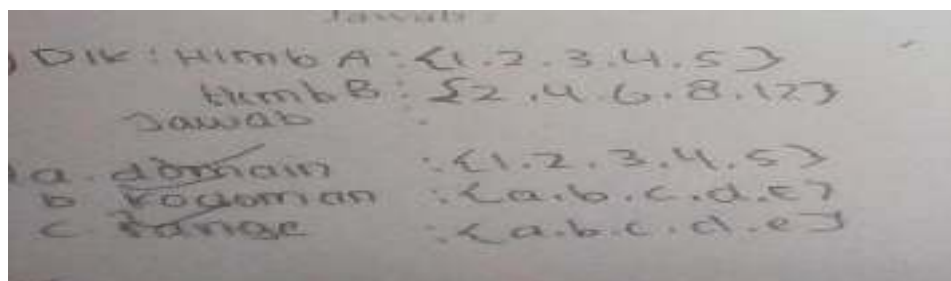 Jawab:
) Dik: Himb A : {1.2.3.4.5}
himb B : {2.4.6.8.12}
Jawab :
a. domain : {1.2.3.4.5}
b kodoman : {a.b.c.d.e}
c range : {a.b.c.d.e}